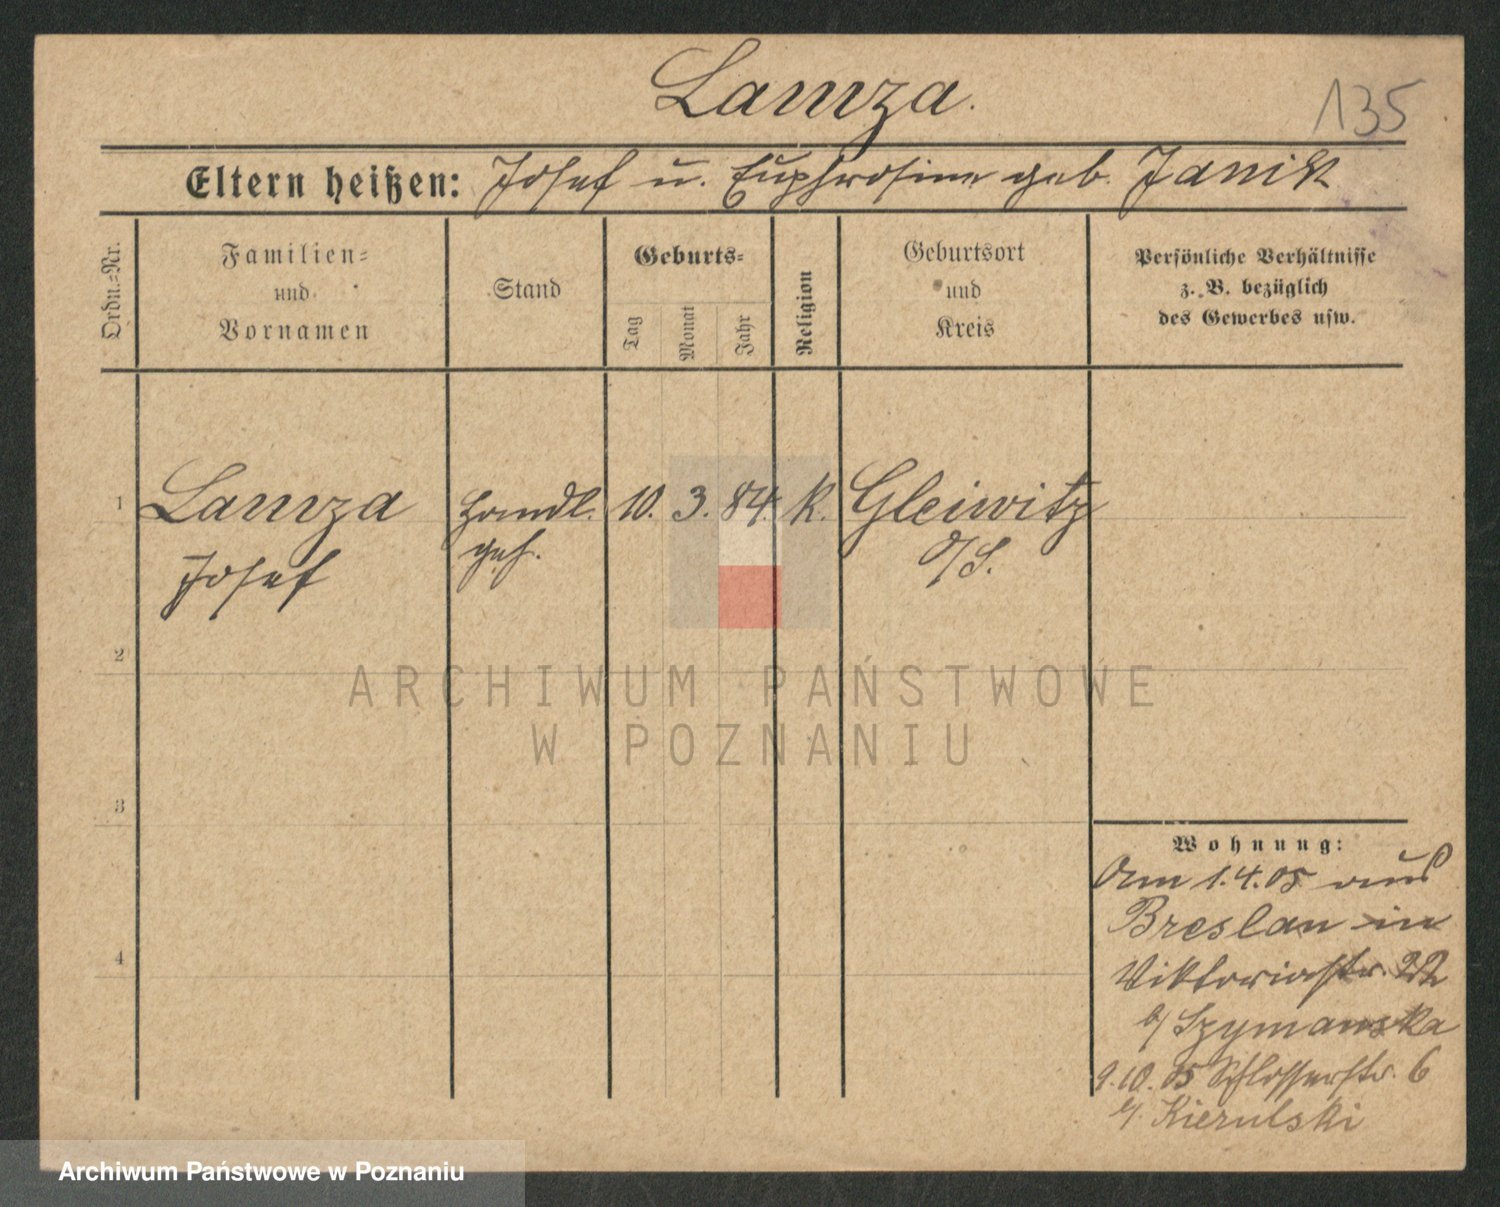 Lamza.
135
Eltern heißen: Josef u. Euphrosine geb. Janik
Ordn.=Nr.
Familien=
und
Vornamen
Stand
Geburts=
Tag
Monat
Jahr
Religion
Geburtsort
und
Kreis
Persönliche Verhältnisse
z. B. bezüglich
des Gewerbes usw.
1 Lamza Handl. 10. 3. 84. K. Gleiwitz
Josef geh. O/S.
2
3
4
Wohnung:
Am 1.4.05 aus
Breslau in
Viktoriastr. 22
b/ Szymanska
9.10.05 Schlosserstr. 6
b/. Kierulski
ARCHIWUM PAŃSTWOWE
W POZNANIU
Archiwum Państwowe w Poznaniu